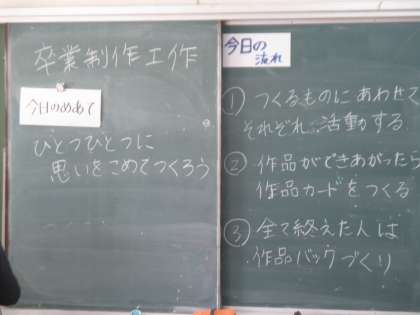 卒業制作工作
今日のめあて
ひとつひとつに
思いをこめてつくろう
今日の
流れ
① つくるものにあわせて
それぞれ活動する
② 作品ができあがったら
作品カードをつくる
③ 全て終えた人は
作品バックづくり